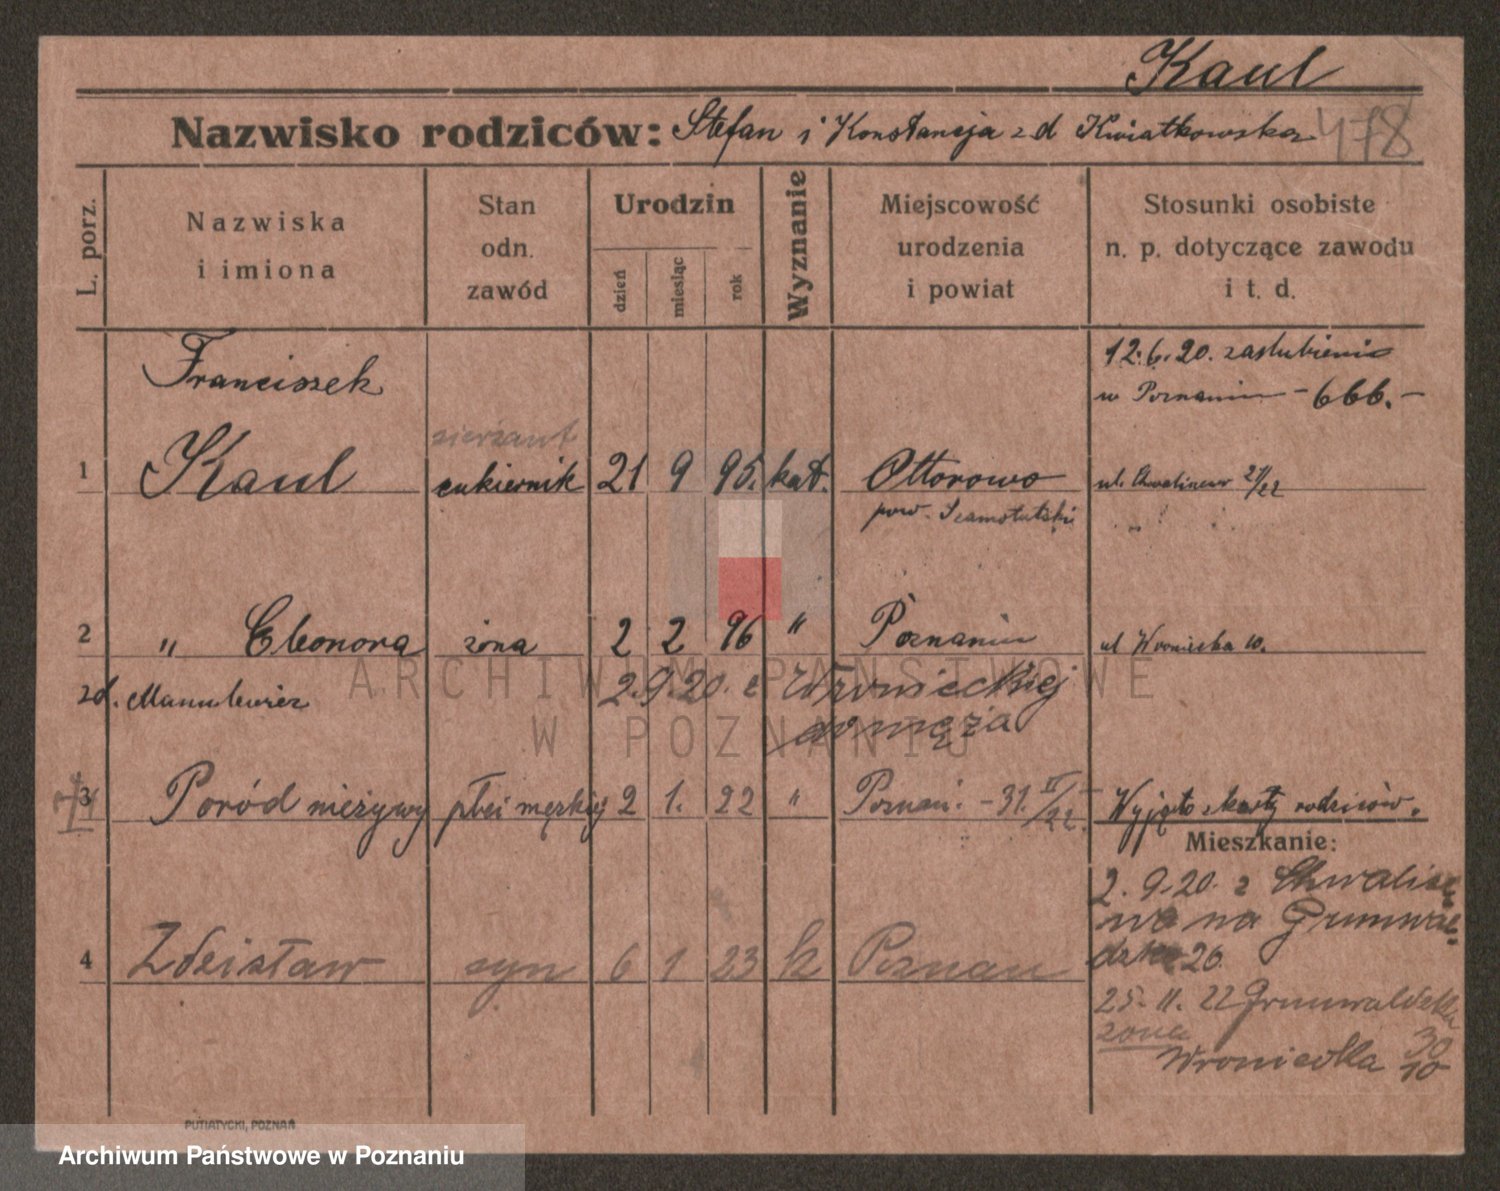 Kaul
Nazwisko rodziców: Stefan i Konstancja z d Kwiatkowska 478
L. porz.
Nazwiska
i imiona
Stan
odn.
zawód
Urodzin
dzień
miesiąc
rok
Wyznanie
Miejscowość
urodzenia
i powiat
Stosunki osobiste
n. p. dotyczące zawodu
i t. d.
12.6.20. zaślubieni
w Poznaniu – 666. –
Franciszek
sierżant
1 Kaul cukiernik 21 9 95. kat. Ottorowo ul. 21/22
pow. Szamotulski
2 " Eleonora żona 2 2 96 " Poznaniu ul Wroniecka 10.
zd. 2.9.20. z Wronieckiej
do męża
3 Poród nieżywy płci męzkiej 2 1. 22 " Poznań. – 31. Wyjęto z karty rodziców.
Mieszkanie:
2. 9.20. z Chwalisze
wa na Grunwal-
dzka 26
4 Zdzisław syn 6 1 23 k Poznań
25. 11. 22 Grunwaldzka
30
żona
Wroniecka 10
PUTIATYCKI, POZNAŃ
ARCHIWUM PAŃSTWOWE
W POZNANIU
Archiwum Państwowe w Poznaniu